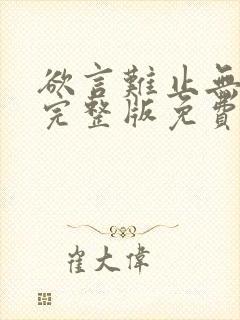 欲言難止無
完整版免費
崔大偉